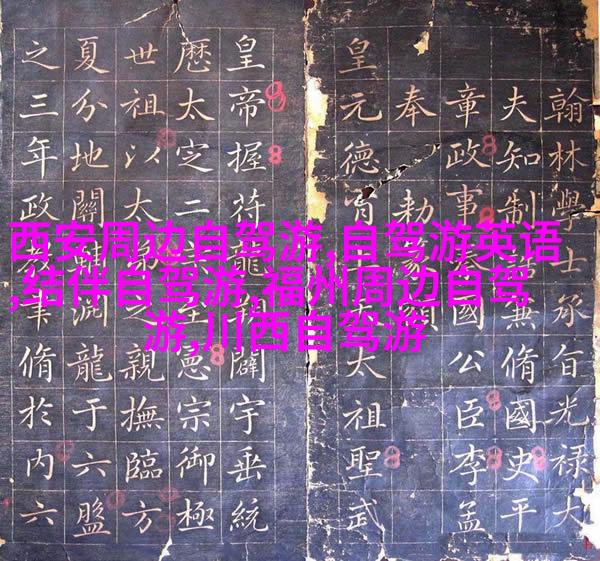 翰林學士承旨光祿大
夫知制誥兼脩國史平
章政事秦國公臣李孟
奉勑篆額
皇元德太祖聖武
皇帝握符龍闢宇垂統
厯太定二憲宗御極
世祖以太弟之親撫臨方
夏分地關淵龍于六盤
之三年政脩於内六
西安周边自驾游,自驾游英语
,结伴自驾游,福州周边自驾
游,川西自驾游